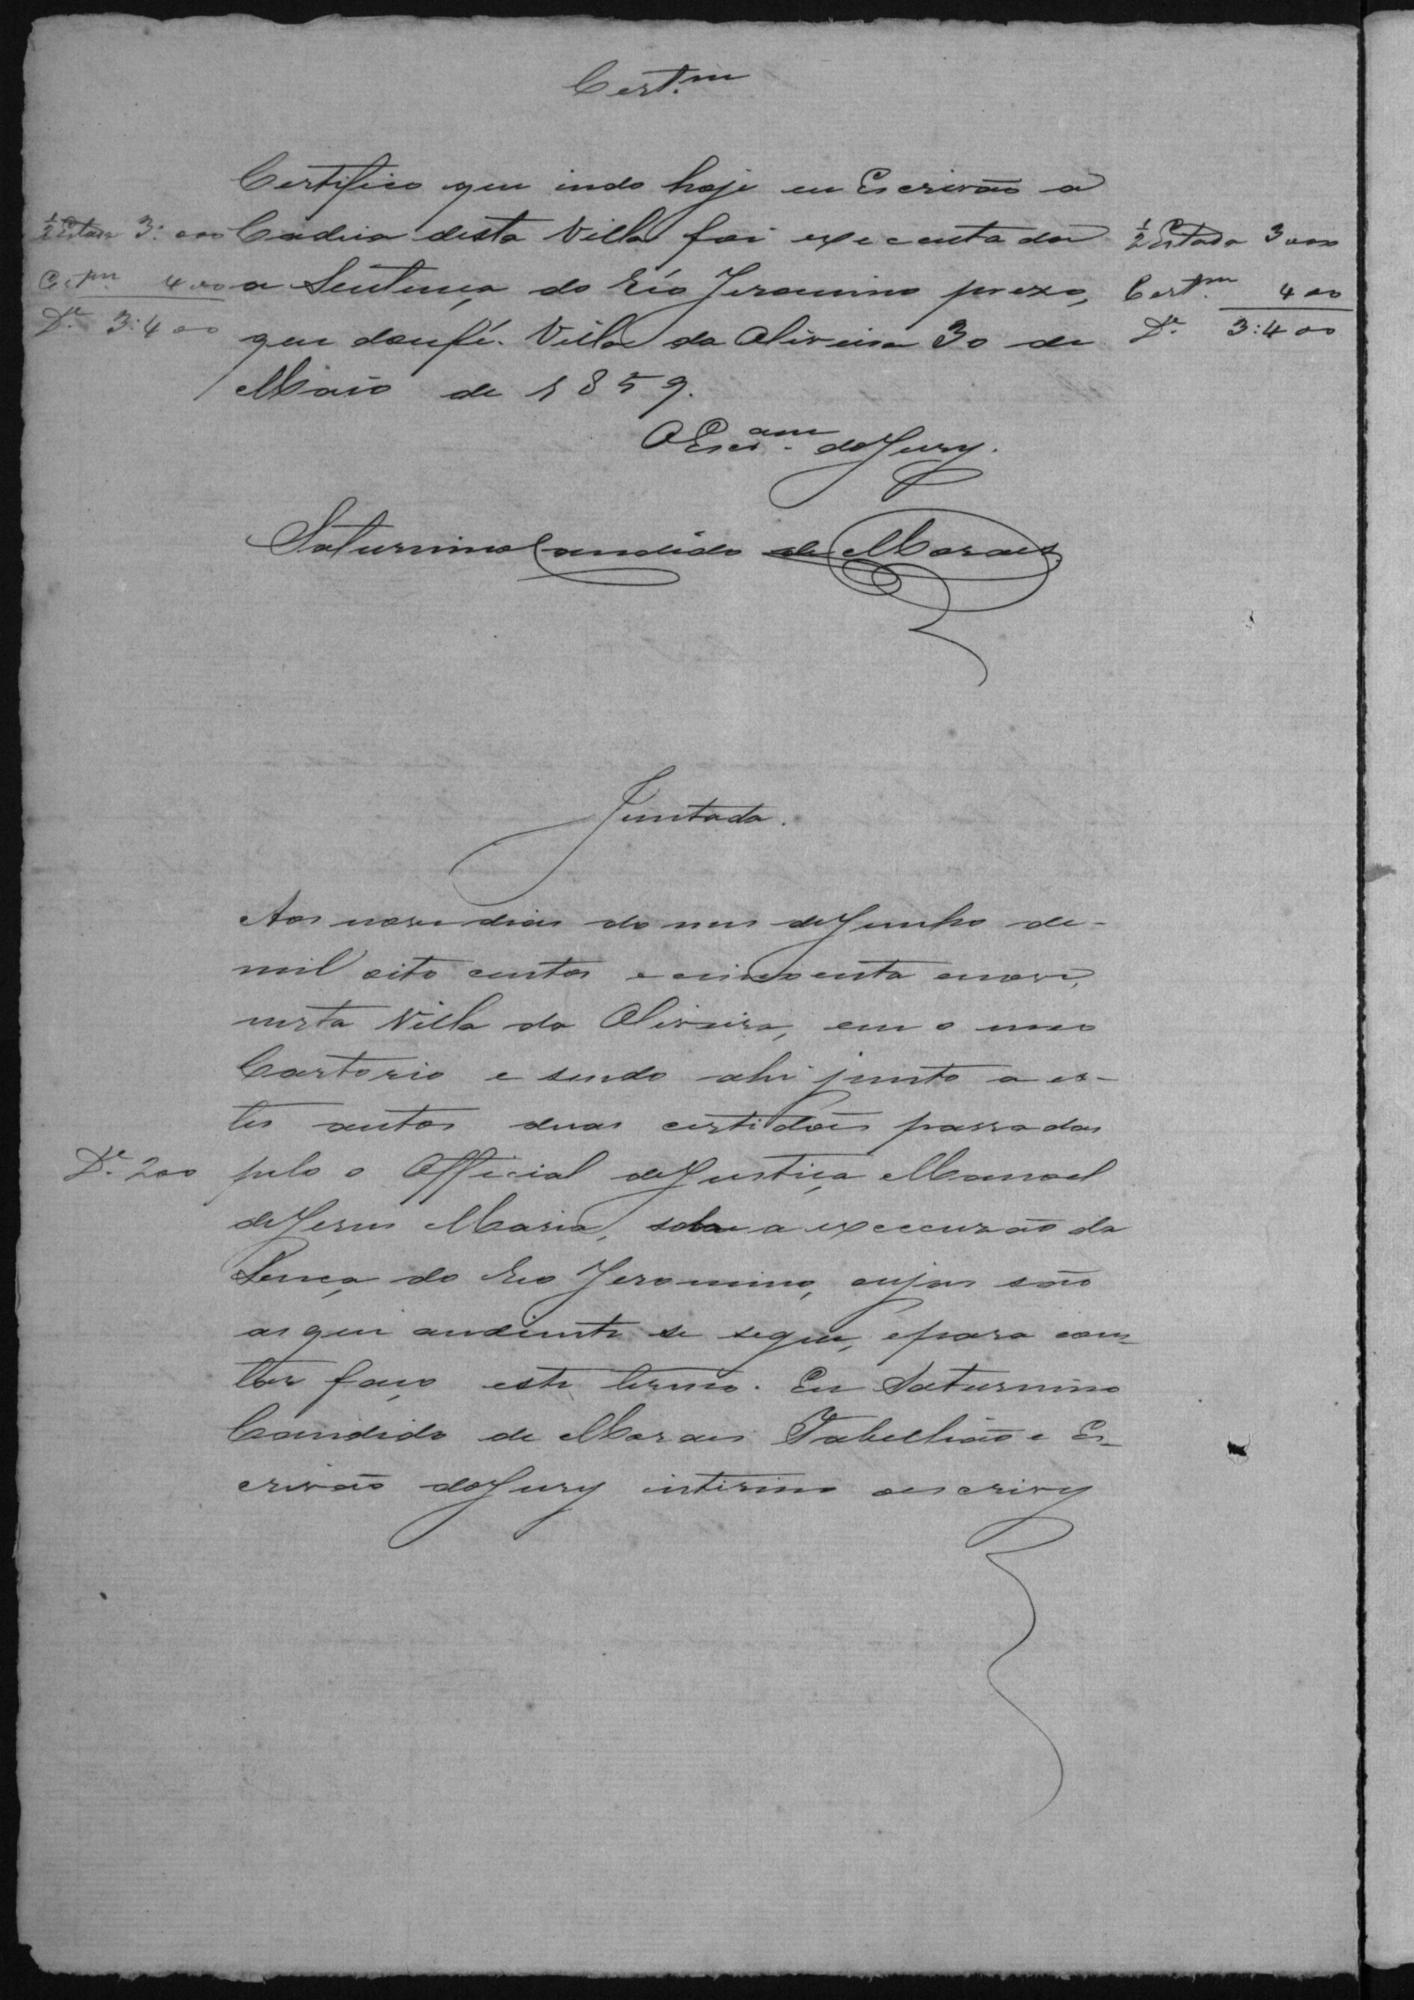 Cert.m
Certifico que indo hoje eu Escrivão a
Cadeia desta Villa foi executada
a Sentença do Réo Jeronimo prezo,
que dou fé. Villa da Oliveira 30 de
Maio de 1859.
½ Estada 3:000
Cert.m 400
D.e 3:400
½ Estada 3000
Cert.m 400
D.e 3:400
O Escr.am do Jury.
Saturnino Candido de Moraes
Juntada.
Aos nove dias do mes de Junho de
mil oito centos e cincoenta enove,
nesta Villa da Oliveira, em o meo
Cartorio e sendo ahi junto a es-
tes autos duas certidões passadas
D.e 200
pelo o Official de Justiça Manoel
de Jesus Maria, sobre a execuzão da
Sença do Reo Jeronimo, cujas são
as que audiente se segue, epara cons-
tar faço este termo. Eu Saturnino
Candido de Moraes Tabellião e Es-
crivão do Jury interino oescrivy